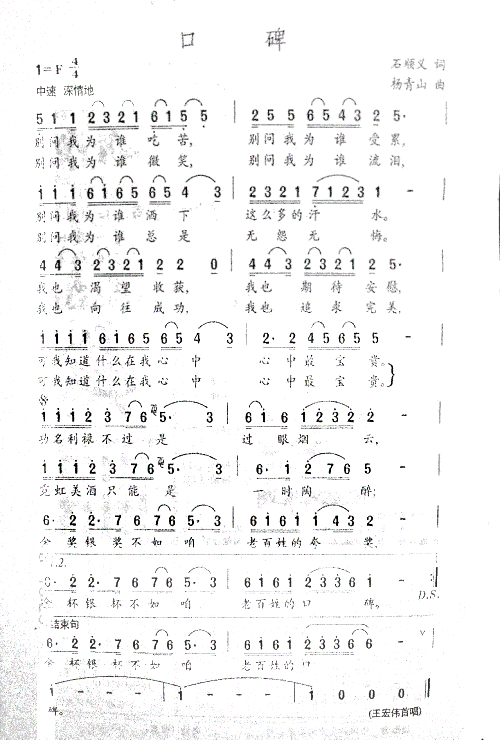 口 碑
1=F 4/4
石顺义 词
中速 深情地
杨青山 曲
5 1 1 2 3 2 1 6 1 5 5 | 2 5 5 6 5 4 3 2 -
别问我为谁吃苦, 别问我为谁受累,
别问我为谁微笑, 别问我为谁流泪,
1 1 1 6 1 6 5 6 5 4 3 | 2 3 2 1 7 1 2 3 1 -
别问我为谁洒下 这么多的汗水。
别问我为谁总是 无怨无悔。
4 4 3 2 3 2 1 2 2 0 | 4 4 3 2 3 2 1 2 5·
我也渴望收获, 我也期待安慰,
我也向往成功, 我也追求完美,
1 1 1 1 1 6 1 6 5 6 5 4 3 | 2· 2 4 5 6 5 5 -
可我知道什么在我心中 心中最宝贵。
可我知道什么在我心中 心中最宝贵。
1 1 1 2 3 2 3 7 6 5· 3 | 6 1 6 1 2 3 2 2 -
功名利禄不过是 过眼烟云,
1 1 1 2 3 7 7 6 5· 3 | 6· 1 2 7 6 5 -
霓虹美酒只能是 一时陶醉;
6· 2 2· 7 6 7 6 5· 3 | 6 1 6 1 1· 4 3 3 -
金奖银奖不如咱 老百姓的夸奖,
1.2.
6· 2 2· 7 6 7 6 5· 3 | 6 1 6 1 2 3 3 6 1 - :||
金杯银杯不如咱 老百姓的口碑。
D.S.
结束句
6· 2 2· 7 6 7 6 5· 3 | 6 1 6 1 2 3 3 6 - V
金杯银杯不如咱 老百姓的口
1 - - - | 1 - - - | 1 0 0 0 ||
碑。
(王宏伟首唱)